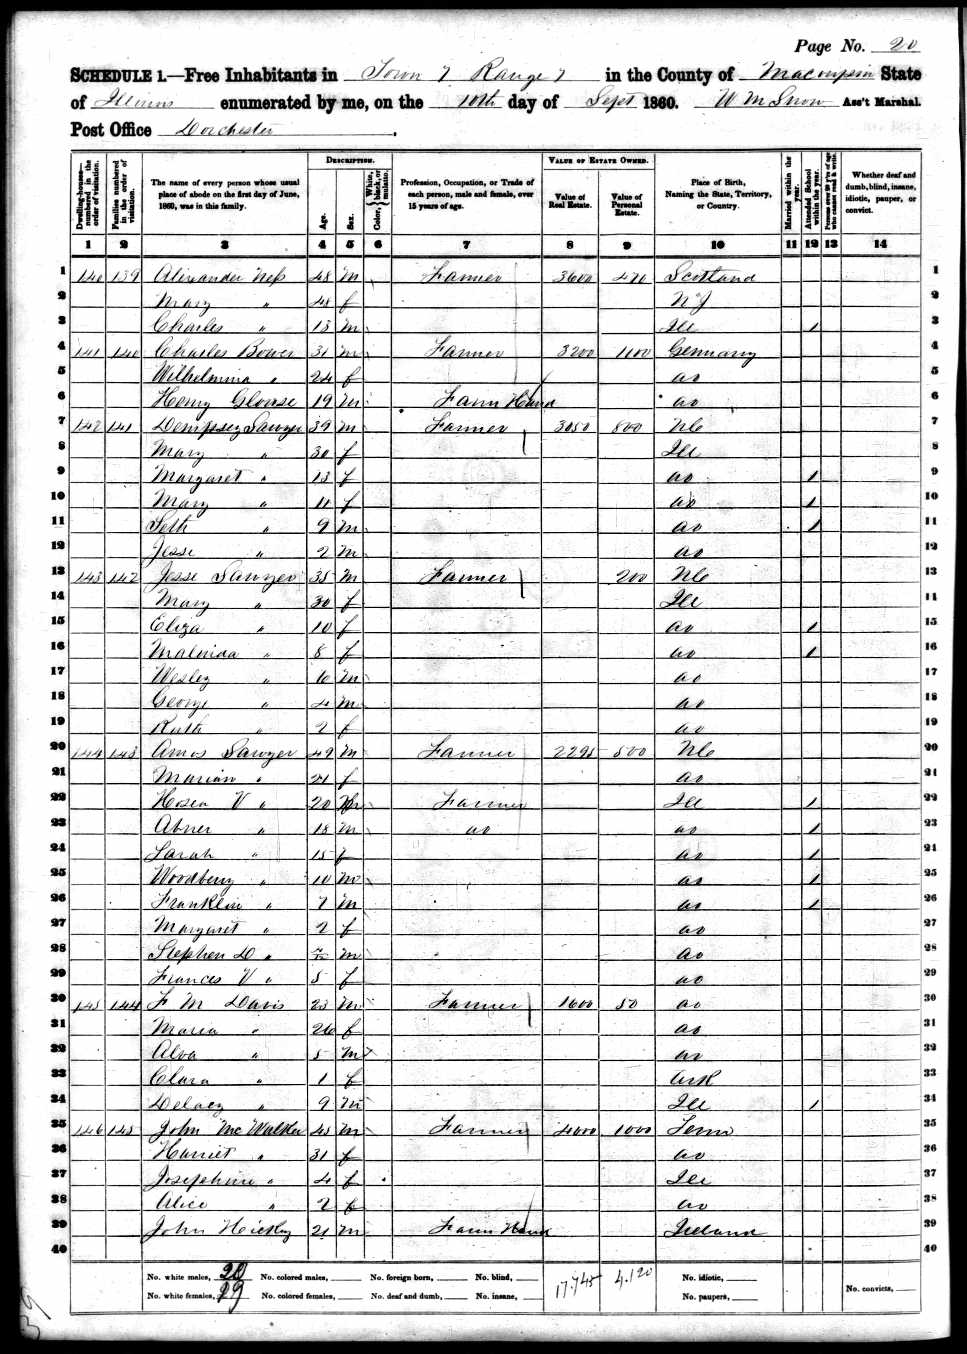 Page No. 20
SCHEDULE 1.—Free Inhabitants in Town 7 Range 7 in the County of Macoupin State
of Illinois enumerated by me, on the 10th day of Sept 1860. W M Snow Ass't Marshal.
Post Office Dorchester.
Dwelling-houses—numbered in the order of visitation. Families numbered in the order of visitation. The name of every person whose usual place of abode on the first day of June, 1860, was in this family. DESCRIPTION. Age. Sex. Color, { White, black, or mulatto. Profession, Occupation, or Trade of each person, male and female, over 15 years of age. VALUE OF ESTATE OWNED. Value of Real Estate. Value of Personal Estate. Place of Birth, Naming the State, Territory, or Country. Married within the year. Attended School within the year. Persons over 20 y'rs of age who cannot read & write. Whether deaf and dumb, blind, insane, idiotic, pauper, or convict.
1 2 3 4 5 6 7 8 9 10 11 12 13 14
1 140 139 Alexander Ness 48 m Farmer 3600 470 Scotland 1
2 Mary " 48 f N J 2
3 Charles " 13 m Ill 1 3
4 141 140 Charles Bower 31 m Farmer 3200 1100 Germany 4
5 Wilhelmina " 24 f do 5
6 Henry Glouse 19 m Farm Hand do 6
7 142 141 Dempsey Sawyer 39 m Farmer 3050 800 NC 7
8 Mary " 30 f Ill 8
9 Margaret " 13 f do 1 9
10 Mary " 11 f do 1 10
11 Seth " 9 m do 1 11
12 Jesse " 2 m do 12
13 143 142 Jesse Sawyer 35 m Farmer 200 NC 13
14 Mary " 30 f Ill 14
15 Eliza " 10 f do 1 15
16 Malinda " 8 f do 1 16
17 Wesley " 6 m do 17
18 George " 4 m do 18
19 Ruth " 2 f do 19
20 144 143 Amos Sawyer 49 m Farmer 2295 500 NC 20
21 Marian " 41 f do 21
22 Hosea V " 20 m Farmer Ill 1 22
23 Abner " 18 m do do 1 23
24 Sarah " 15 f do 1 24
25 Woodberry " 10 m do 1 25
26 Franklin " 7 m do 1 26
27 Margaret " 2 f do 27
28 Stephen D " m do 28
29 Frances V " 5 f do 29
30 145 144 F M Davis 23 m Farmer 1600 50 do 30
31 Maria " 26 f do 31
32 Alva " 5 m do 32
33 Clara " 1 f Ark 33
34 Delacy " 9 m Ill 1 34
35 146 145 John McWalker 45 m Farmer 4000 1000 Tenn 35
36 Harriet " 31 f do 36
37 Josephine " 4 f Ill 37
38 Alice " 2 f do 38
39 John Hickey 21 m Farm Hand Ireland 39
40 40
No. white males, 20 No. colored males, No. foreign born, No. blind, 17.745 4.120 No. idiotic,
No. white females, 29 No. colored females, No. deaf and dumb, No. insane, No. paupers, No. convicts,